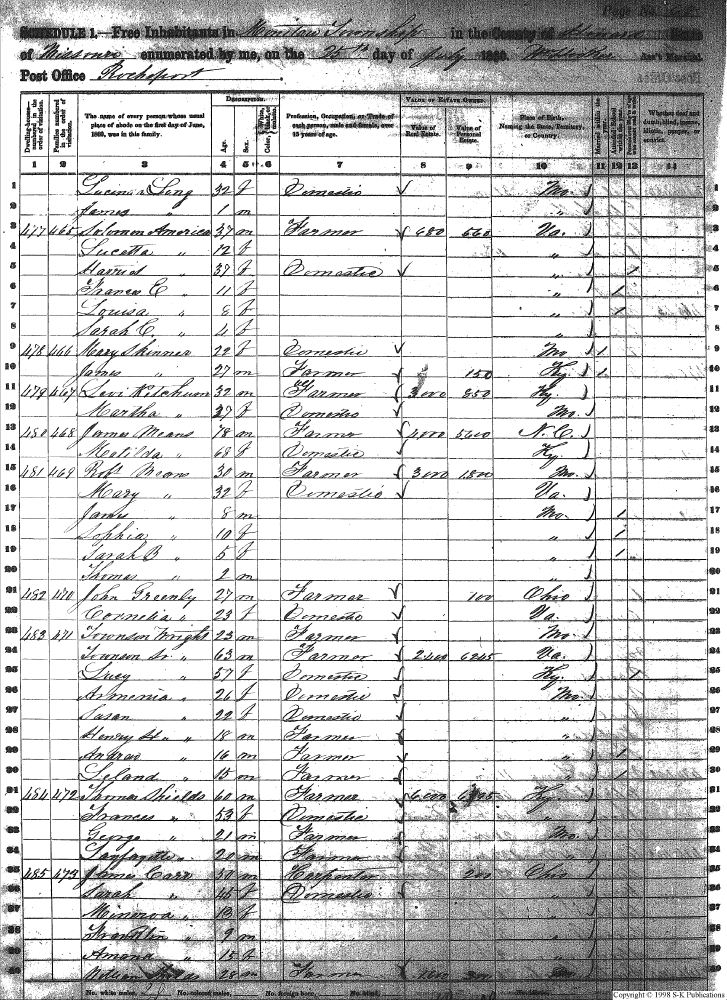 Page No.
SCHEDULE 1.—Free Inhabitants in Moniteau Township in the County of Howard State
of Missouri enumerated by me, on the 25th day of July 1860. Ass't Marshal.
Post Office Rocheport
Dwelling-houses numbered in the order of visitation.
Families numbered in the order of visitation.
The name of every person whose usual place of abode on the first day of June, 1860, was in this family.
DESCRIPTION.
Age.
Sex.
Color, White, black, or mulatto.
Profession, Occupation, or Trade of each person, male and female, over 15 years of age.
VALUE OF ESTATE OWNED.
Value of Real Estate.
Value of Personal Estate.
Place of Birth, Naming the State, Territory, or Country.
Married within the year.
Attended School within the year.
Whether deaf and dumb, blind, insane, idiotic, pauper, or convict.
1 2 3 4 5 6 7 8 9 10 11 12 13 14
1 Long 32 f Domestic Mo. 1
2 James " 1 m " 2
3 477 465 Solomon America 37 m Farmer 680 560 Va. 3
4 Lucetta " 12 f " 4
5 Harriet " 37 f Domestic " 1 5
6 Frances C " 11 f " 1 6
7 Louisa " 8 f " 1 7
8 Sarah C. " 4 f " 8
9 478 466 Mary Skinner 22 f Domestic Mo. 1 9
10 James " 27 m Farmer 150 Ky. 1 10
11 479 467 Levi Ketchum 32 m Farmer 3000 850 Ky. 11
12 Martha " 27 f Domestic Mo. 12
13 480 468 James Means 78 m Farmer 4000 5600 N.C. 13
14 Matilda " 68 f Domestic Ky. 14
15 481 469 Robt Means 30 m Farmer 3000 1800 Mo. 15
16 Mary " 32 f Domestic Va. 16
17 James " 8 m Mo. 1 17
18 Sophia " 10 f " 1 18
19 Sarah B " 5 f " 1 19
20 Thomas " 2 m " 20
21 482 470 John Greenly 27 m Farmer 100 Ohio 21
22 Cornelia " 23 f Domestic Va. 22
23 483 471 Townson Wright 23 m Farmer Mo. 23
24 Townson Sr. " 63 m Farmer 2400 6245 Va. 24
25 Lucy " 57 f Domestic Ky. 1 25
26 Armenia " 26 f Domestic Mo. 26
27 Susan " 22 f Domestic " 27
28 Henry H. " 18 m Farmer " 28
29 Andrew " 16 m Farmer " 1 29
30 Leland " 15 m Farmer " 1 30
31 484 472 Thomas Shields 60 m Farmer Ky. 31
32 Frances " 53 f Domestic " 32
33 George " 21 m Farmer Mo. 33
34 Lafayette " 20 m Farmer " 34
35 485 473 James Carr 39 m Carpenter 200 Ohio 35
36 Sarah " 45 f Domestic " 36
37 Minerva " 13 f " 37
38 Franklin " 9 m " 38
39 Amand " 15 f " 39
40 William 28 m Farmer 40
No. white males, No. colored males, No. foreign born,
Copyright © 1998 S-K Publications